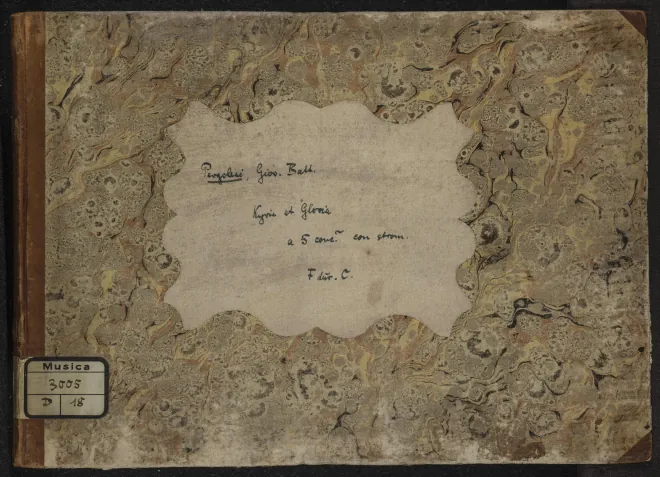 Pergolesi, Giov. Batt.
Kyrie et Gloria
a 5 conc.ti con strom.
F dur. C.
Musica
3005
D 18